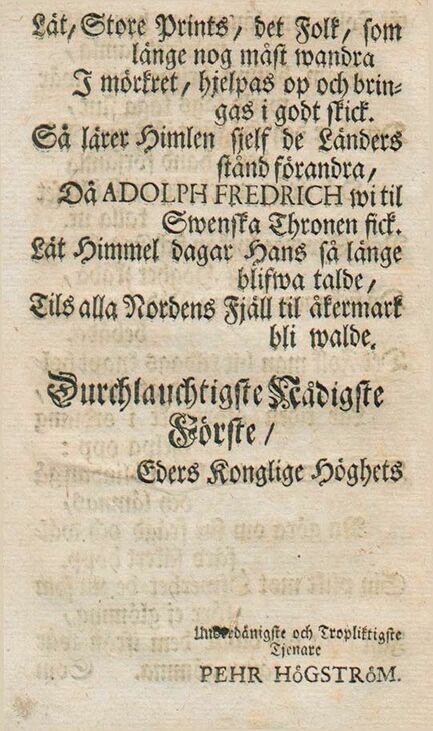 Låt, Store Prints, det Folk, som
länge nog måst wandra
I mörkret, hjelpas op och brin-
gas i godt skick.
Så lärer Himlen sjelf de Länders
stånd förandra,
Då ADOLPH FREDRICH wi til
Swenska Thronen fick.
Lät Himmel dagar Hans så länge
blifwa talde,
Tils alla Nordens Fjäll til åkermark
bli walde.
Durchlauchtigste Nådigste
Förste/
Eders Konglige Höghets
Underdånigste och Tropliktigste
Tjenare
PEHR HöGSTRöM.